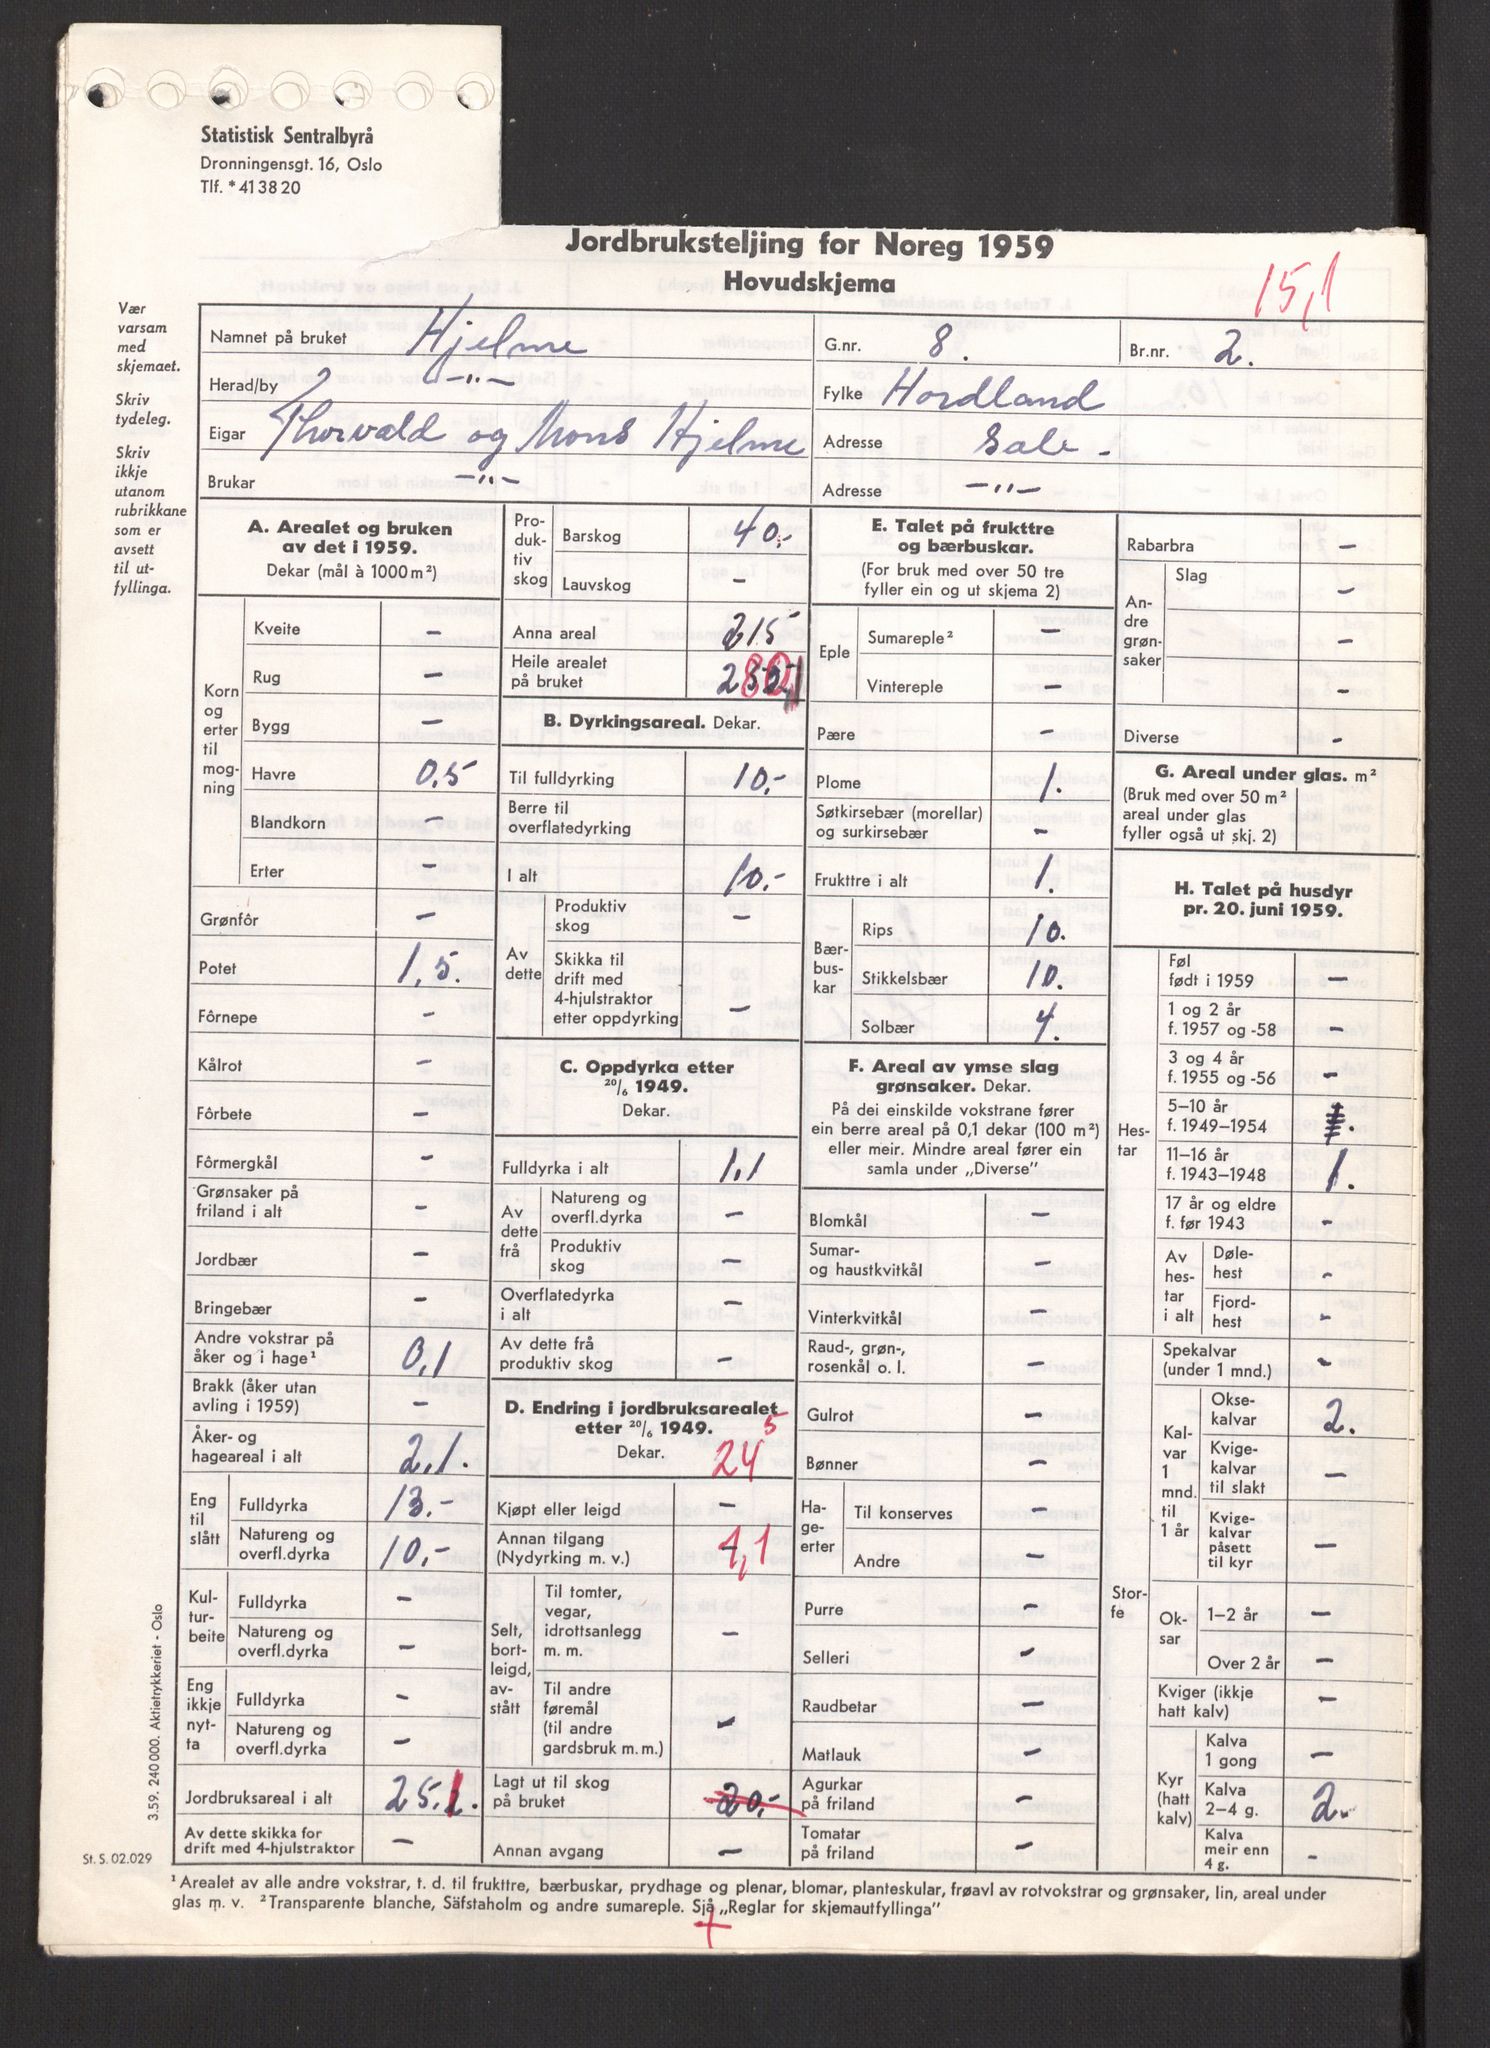 Statistisk Sentralbyrå
Dronningensgt. 16, Oslo
Tlf. * 41 38 20
Jordbruksteljing for Noreg 1959
Hovudskjema
15,1
Vær
varsam
med
skjemaet.
Skriv
tydeleg.
Skriv
ikkje
utanom
rubrikkane
som er
avsett
til ut-
fyllinga.
Namnet på bruket Hjelme G.nr. 8. Br.nr. 2.
Herad/by —"— Fylke Hordland
Eigar Thorvald og Mons Hjelme Adresse Sale.
Brukar —"— Adresse —"—
A. Arealet og bruken
av det i 1959.
Dekar (mål à 1000 m²)
Korn og erter til mogning
Kveite –
Rug –
Bygg –
Havre 0,5
Blandkorn –
Erter –
Grønfôr –
Potet 1,5.
Fôrnepe –
Kålrot –
Fôrbete –
Fôrmergkål –
Grønsaker på
friland i alt –
Jordbær –
Bringebær –
Andre vokstrar på
åker og i hage¹ 0,1
Brakk (åker utan
avling i 1959) –
Åker- og
hageareal i alt 2,1.
Eng til slått
Fulldyrka 13.-
Natureng og
overfl.dyrka 10,-
Kul-
tur-
beite
Fulldyrka –
Natureng og
overfl.dyrka –
Eng
ikkje
nyt-
ta
Fulldyrka –
Natureng og
overfl.dyrka –
Jordbruksareal i alt 25,1.
Av dette skikka for
drift med 4-hjulstraktor –
Pro-
duk-
tiv
skog
Barskog 40,-
Lauvskog –
Anna areal 215
Heile arealet
på bruket 280,1
B. Dyrkingsareal. Dekar.
Til fulldyrking 10.-
Berre til
overflatedyrking
I alt 10.-
Av
dette
Produktiv
skog –
Skikka til
drift med
4-hjulstraktor
etter oppdyrking –
C. Oppdyrka etter
20/6 1949.
Dekar.
Fulldyrka i alt 1,1
Av
dette
frå
Natureng og
overfl.dyrka –
Produktiv
skog –
Overflatedyrka
i alt –
Av dette frå
produktiv skog –
D. Endring i jordbruksarealet
etter 20/6 1949.
Dekar. 24 5
Kjøpt eller leigd –
Annan tilgang
(Nydyrking m. v.) 1,1
Selt,
bort-
leigd,
av-
stått
Til tomter,
vegar,
idrottsanlegg
m. m. –
Til andre
føremål
(til andre
gardsbruk m. m.) –
Lagt ut til skog
på bruket 20,-
Annan avgang –
E. Talet på frukttre
og bærbuskar.
(For bruk med over 50 tre
fyller ein og ut skjema 2)
Eple
Sumareple² –
Vintereple –
Pære –
Plome 1.
Søtkirsebær (morellar)
og surkirsebær –
Frukttre i alt 1.
Bær-
bus-
kar
Rips 10.
Stikkelsbær 10.
Solbær 4.
F. Areal av ymse slag
grønsaker. Dekar.
På dei einskilde vokstrane fører
ein berre areal på 0,1 dekar (100 m²)
eller meir. Mindre areal fører ein
samla under „Diverse”
Blomkål –
Sumar-
og haustkvitkål –
Vinterkvitkål –
Raud-, grøn-,
rosenkål o. l. –
Gulrot –
Bønner –
Ha-
ge-
erter
Til konserves –
Andre –
Purre –
Selleri –
Raudbetar –
Matlauk –
Agurkar
på friland –
Tomatar
på friland –
Rabarbra –
An-
dre
grøn-
saker
Slag
–
–
–
Diverse –
G. Areal under glas. m²
(Bruk med over 50 m²
areal under glas
fyller også ut skj. 2)
H. Talet på husdyr
pr. 20. juni 1959.
Hes-
tar
Føl
født i 1959 –
1 og 2 år
f. 1957 og -58 –
3 og 4 år
f. 1955 og -56 –
5–10 år
f. 1949–1954
11–16 år
f. 1943–1948 1.
17 år og eldre
f. før 1943 –
Av
hes-
tar
i alt
Døle-
hest –
Fjord-
hest –
Stor-
fe
Spekalvar
(under 1 mnd.) –
Kal-
var
1
mnd.
til
1 år
Okse-
kalvar 2.
Kvige-
kalvar
til slakt –
Kvige-
kalvar
påsett
til kyr –
Ok-
sar
1–2 år –
Over 2 år –
Kviger (ikkje
hatt kalv) –
Kyr
(hatt
kalv)
Kalva
1 gong –
Kalva
2–4 g. 2.
Kalva
meir enn
4 g. –
3.59. 240 000. Aktietrykkeriet - Oslo
St. S. 02.029
¹ Arealet av alle andre vokstrar, t. d. til frukttre, bærbuskar, prydhage og plenar, blomar, planteskular, frøavl av rotvokstrar og grønsaker, lin, areal under
glas m. v. ² Transparente blanche, Säfstaholm og andre sumareple. Sjå „Reglar for skjemautfyllinga”
+